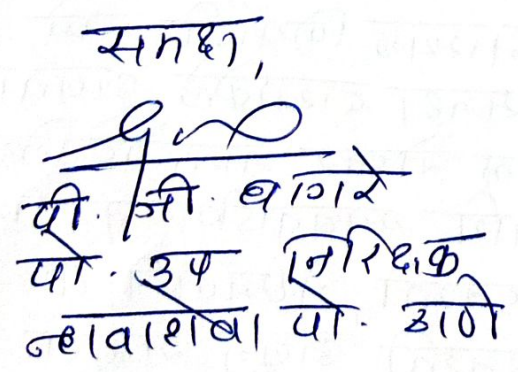 समक्ष,
पी. जी. बागरे
पो. उप निरिक्षक
न्हावाशेवा पो. ठाणे